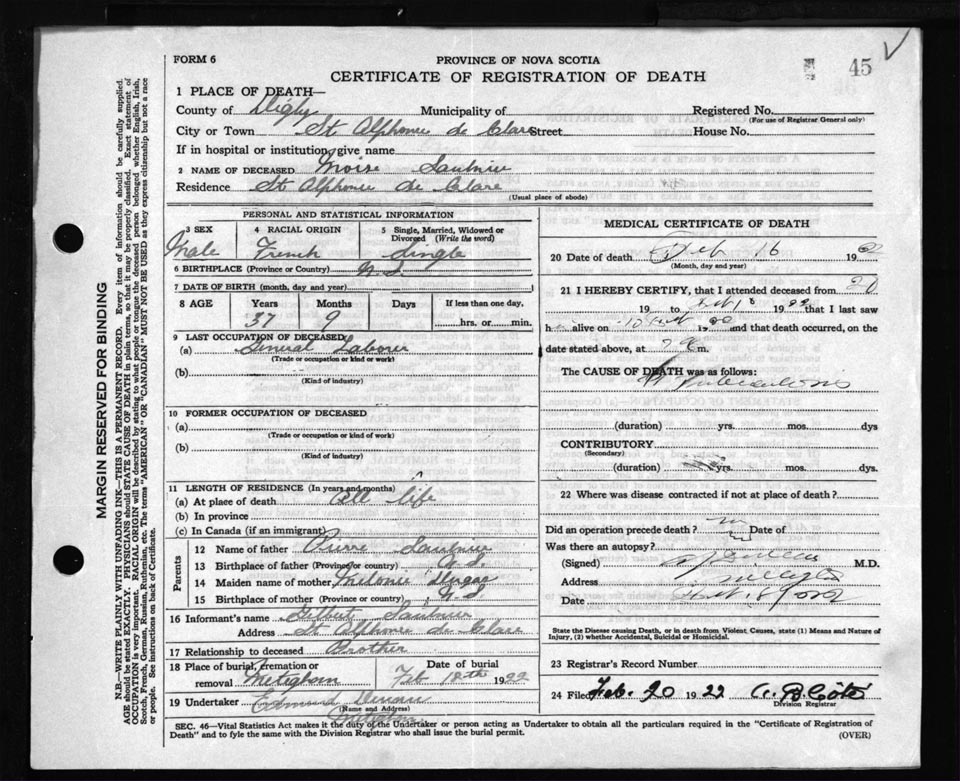 FORM 6
PROVINCE OF NOVA SCOTIA
CERTIFICATE OF REGISTRATION OF DEATH
45
1 PLACE OF DEATH—
County of Digby Municipality of Registered No.
(For use of Registrar General only)
City or Town St Alphonse de Clare Street House No.
If in hospital or institution, give name
2 NAME OF DECEASED Moise Saulnier
Residence St Alphonse de Clare
(Usual place of abode)
PERSONAL AND STATISTICAL INFORMATION
3 SEX 4 RACIAL ORIGIN 5 Single, Married, Widowed or Divorced (Write the word)
Male French single
6 BIRTHPLACE (Province or Country) N.S.
7 DATE OF BIRTH (month, day and year)
8 AGE Years Months Days If less than one day,
37 9 hrs. or min.
9 LAST OCCUPATION OF DECEASED
(a) General Laborer
(Trade or occupation or kind of work)
(b)
(Kind of industry)
10 FORMER OCCUPATION OF DECEASED
(a)
(Trade or occupation or kind of work)
(b)
(Kind of industry)
11 LENGTH OF RESIDENCE (In years and months)
(a) At place of death All life
(b) In province
(c) In Canada (if an immigrant)
Parents
12 Name of father Pierre Saulnier
13 Birthplace of father (Province or country) N.S.
14 Maiden name of mother Melonie Dugas
15 Birthplace of mother (Province or country) N.S
16 Informant's name Gilbert Saulnier
Address St Alphonse de Clare
17 Relationship to deceased Brother
18 Place of burial, cremation or removal Meteghan Date of burial Feb 18th 1922
19 Undertaker Edmund
(Name and Address)
Meteghan
MEDICAL CERTIFICATE OF DEATH
20 Date of death Feb 16 1922
(Month, day and year)
21 I HEREBY CERTIFY, that I attended deceased from
19 to 1922 that I last saw
h alive on 19 and that death occurred, on the
date stated above, at m.
The CAUSE OF DEATH was as follows:
Tuberculosis
(duration) yrs. mos. dys
CONTRIBUTORY
(Secondary)
(duration) yrs. mos. dys
22 Where was disease contracted if not at place of death?
Did an operation precede death? no Date of
Was there an autopsy?
(Signed) M.D.
Address
Date
State the Disease causing Death, or in death from Violent Causes, state (1) Means and Nature of Injury, (2) whether Accidental, Suicidal or Homicidal.
23 Registrar's Record Number
24 Filed Feb. 20 1922 A. B. Côté
Division Registrar
SEC. 46—Vital Statistics Act makes it the duty of the Undertaker or person acting as Undertaker to obtain all the particulars required in the "Certificate of Registration of
Death" and to fyle the same with the Division Registrar who shall issue the burial permit.
(OVER)
MARGIN RESERVED FOR BINDING
N.B.—WRITE PLAINLY WITH UNFADING INK—THIS IS A PERMANENT RECORD. Every item of information should be carefully supplied.
AGE should be stated EXACTLY. PHYSICIANS should STATE CAUSE OF DEATH in plain terms, so that it may be properly classified. Exact statement of
OCCUPATION is very important. RACIAL ORIGIN will be described by stating to what people or tongue the deceased person belonged whether English, Irish,
Scotch, French, German, Russian, Ruthenian, etc. The terms "AMERICAN" OR "CANADIAN" MUST NOT BE USED as they express citizenship but not a race
or people. See instructions on back of Certificate.